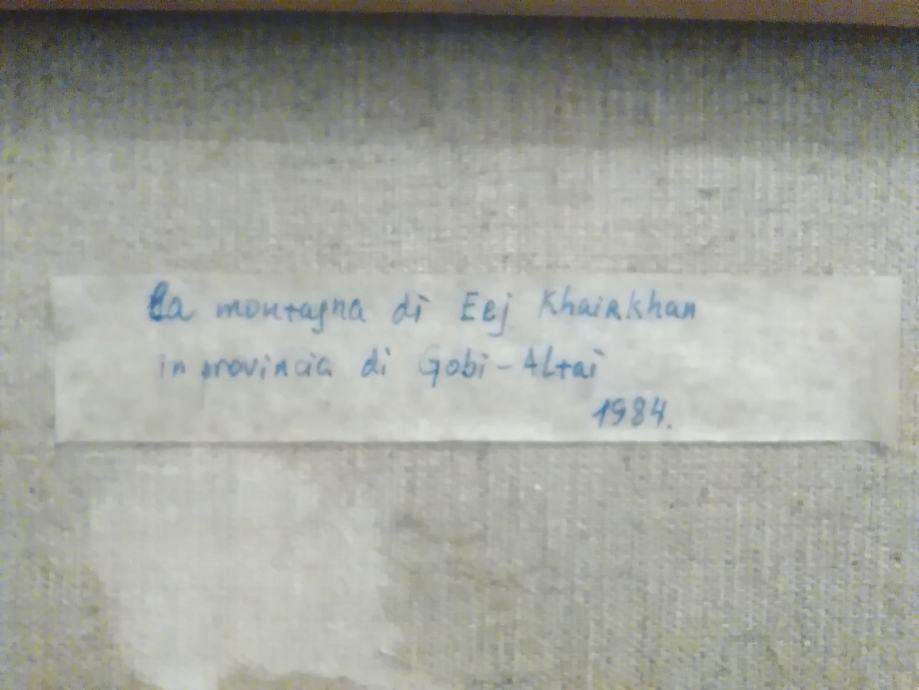 La montagna di Eej Khairkhan
in provincia di Gobi-Altai
1984.